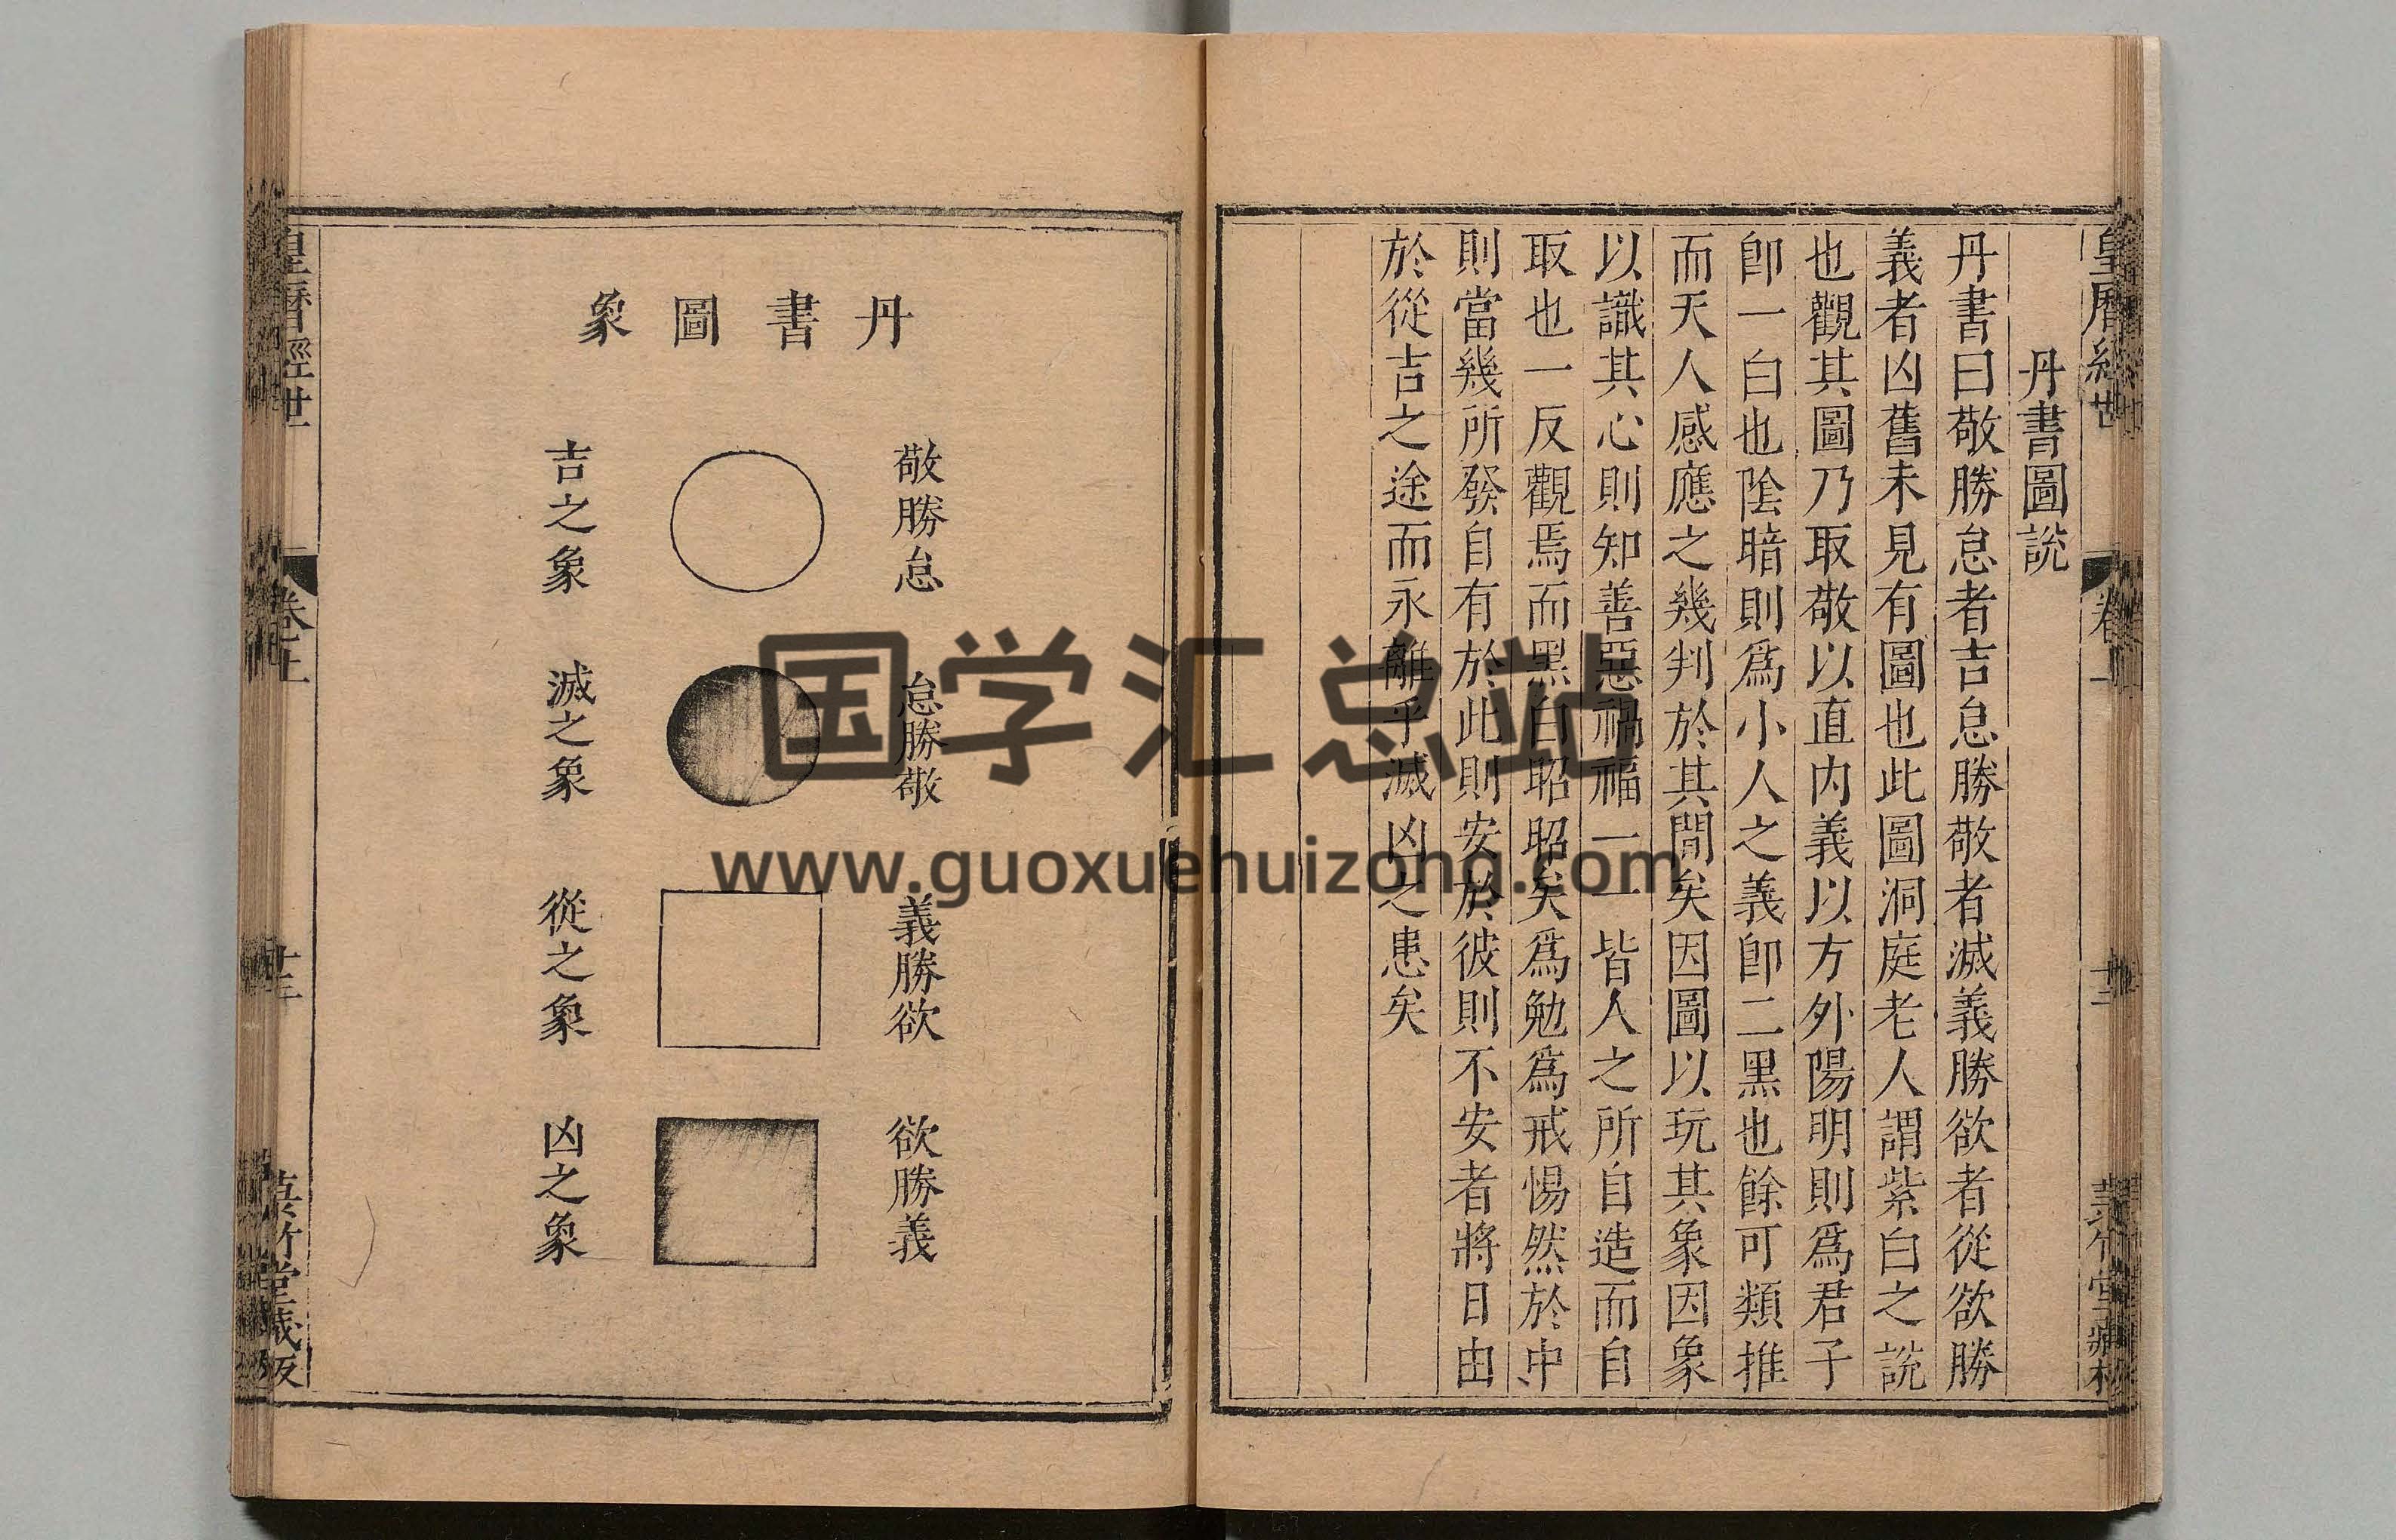 丹書圖說
丹書曰敬勝怠者吉怠勝敬者滅義勝欲者從欲勝
義者凶舊未見有圖也此圖洞庭老人謂紫白之說
也觀其圖乃取敬以直内義以方外陽明則爲君子
卽一白也陰暗則爲小人之義卽二黑也餘可類推
而天人感應之幾判於其間矣因圖以玩其象因象
以識其心則知善惡禍福一一皆人之所自造而自
取也一反觀焉而黑白昭昭矣爲勉爲戒惕然於中
則當幾所發自有於此則安於彼則不安者將日由
於從吉之途而永離乎滅凶之患矣
丹書圖象
敬勝怠
吉之象
怠勝敬
滅之象
義勝欲
從之象
欲勝義
凶之象
皇曆經世
卷上
国学汇总站
www.guoxuehuizong.com